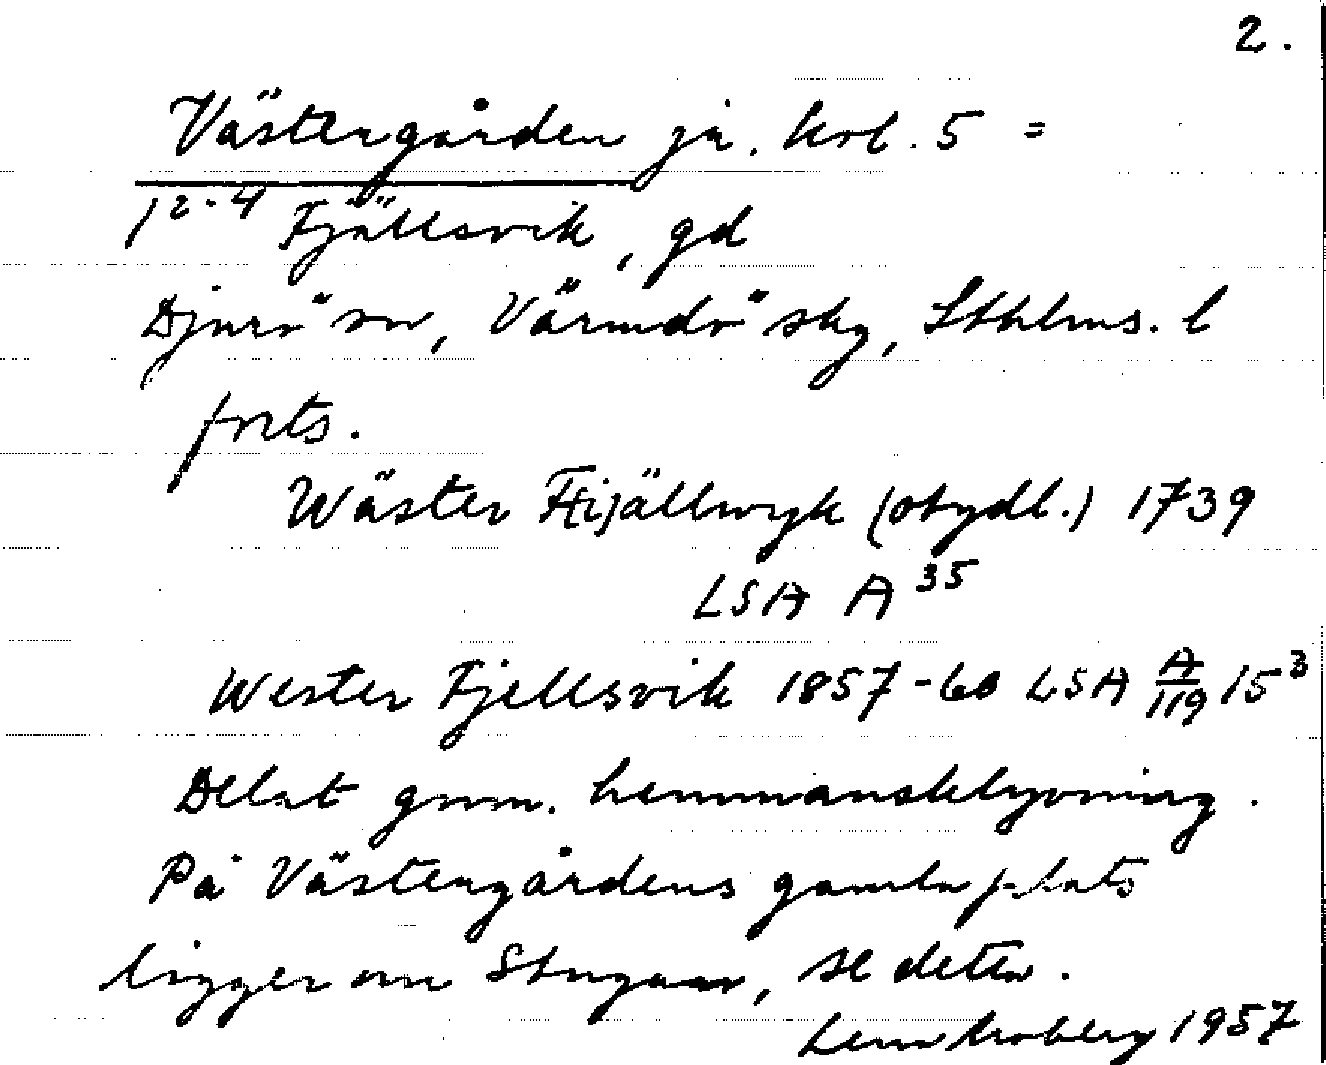 2.
Västergården jä. krl. 5 =
1 2-4 Fjällsvik, gd
Djurö sn, Värmdö skg, Sthlms. l
forts.
Wäster Fjällwyk (otydl.) 1739
LSA A 35
Wester Fjellsvik 1857-60 LSA A/119 15 3
Delat gnm. hemmansklyvning.
På Västergårdens gamla plats
ligger nu Stugan, se detta.
Lena Moberg 1957